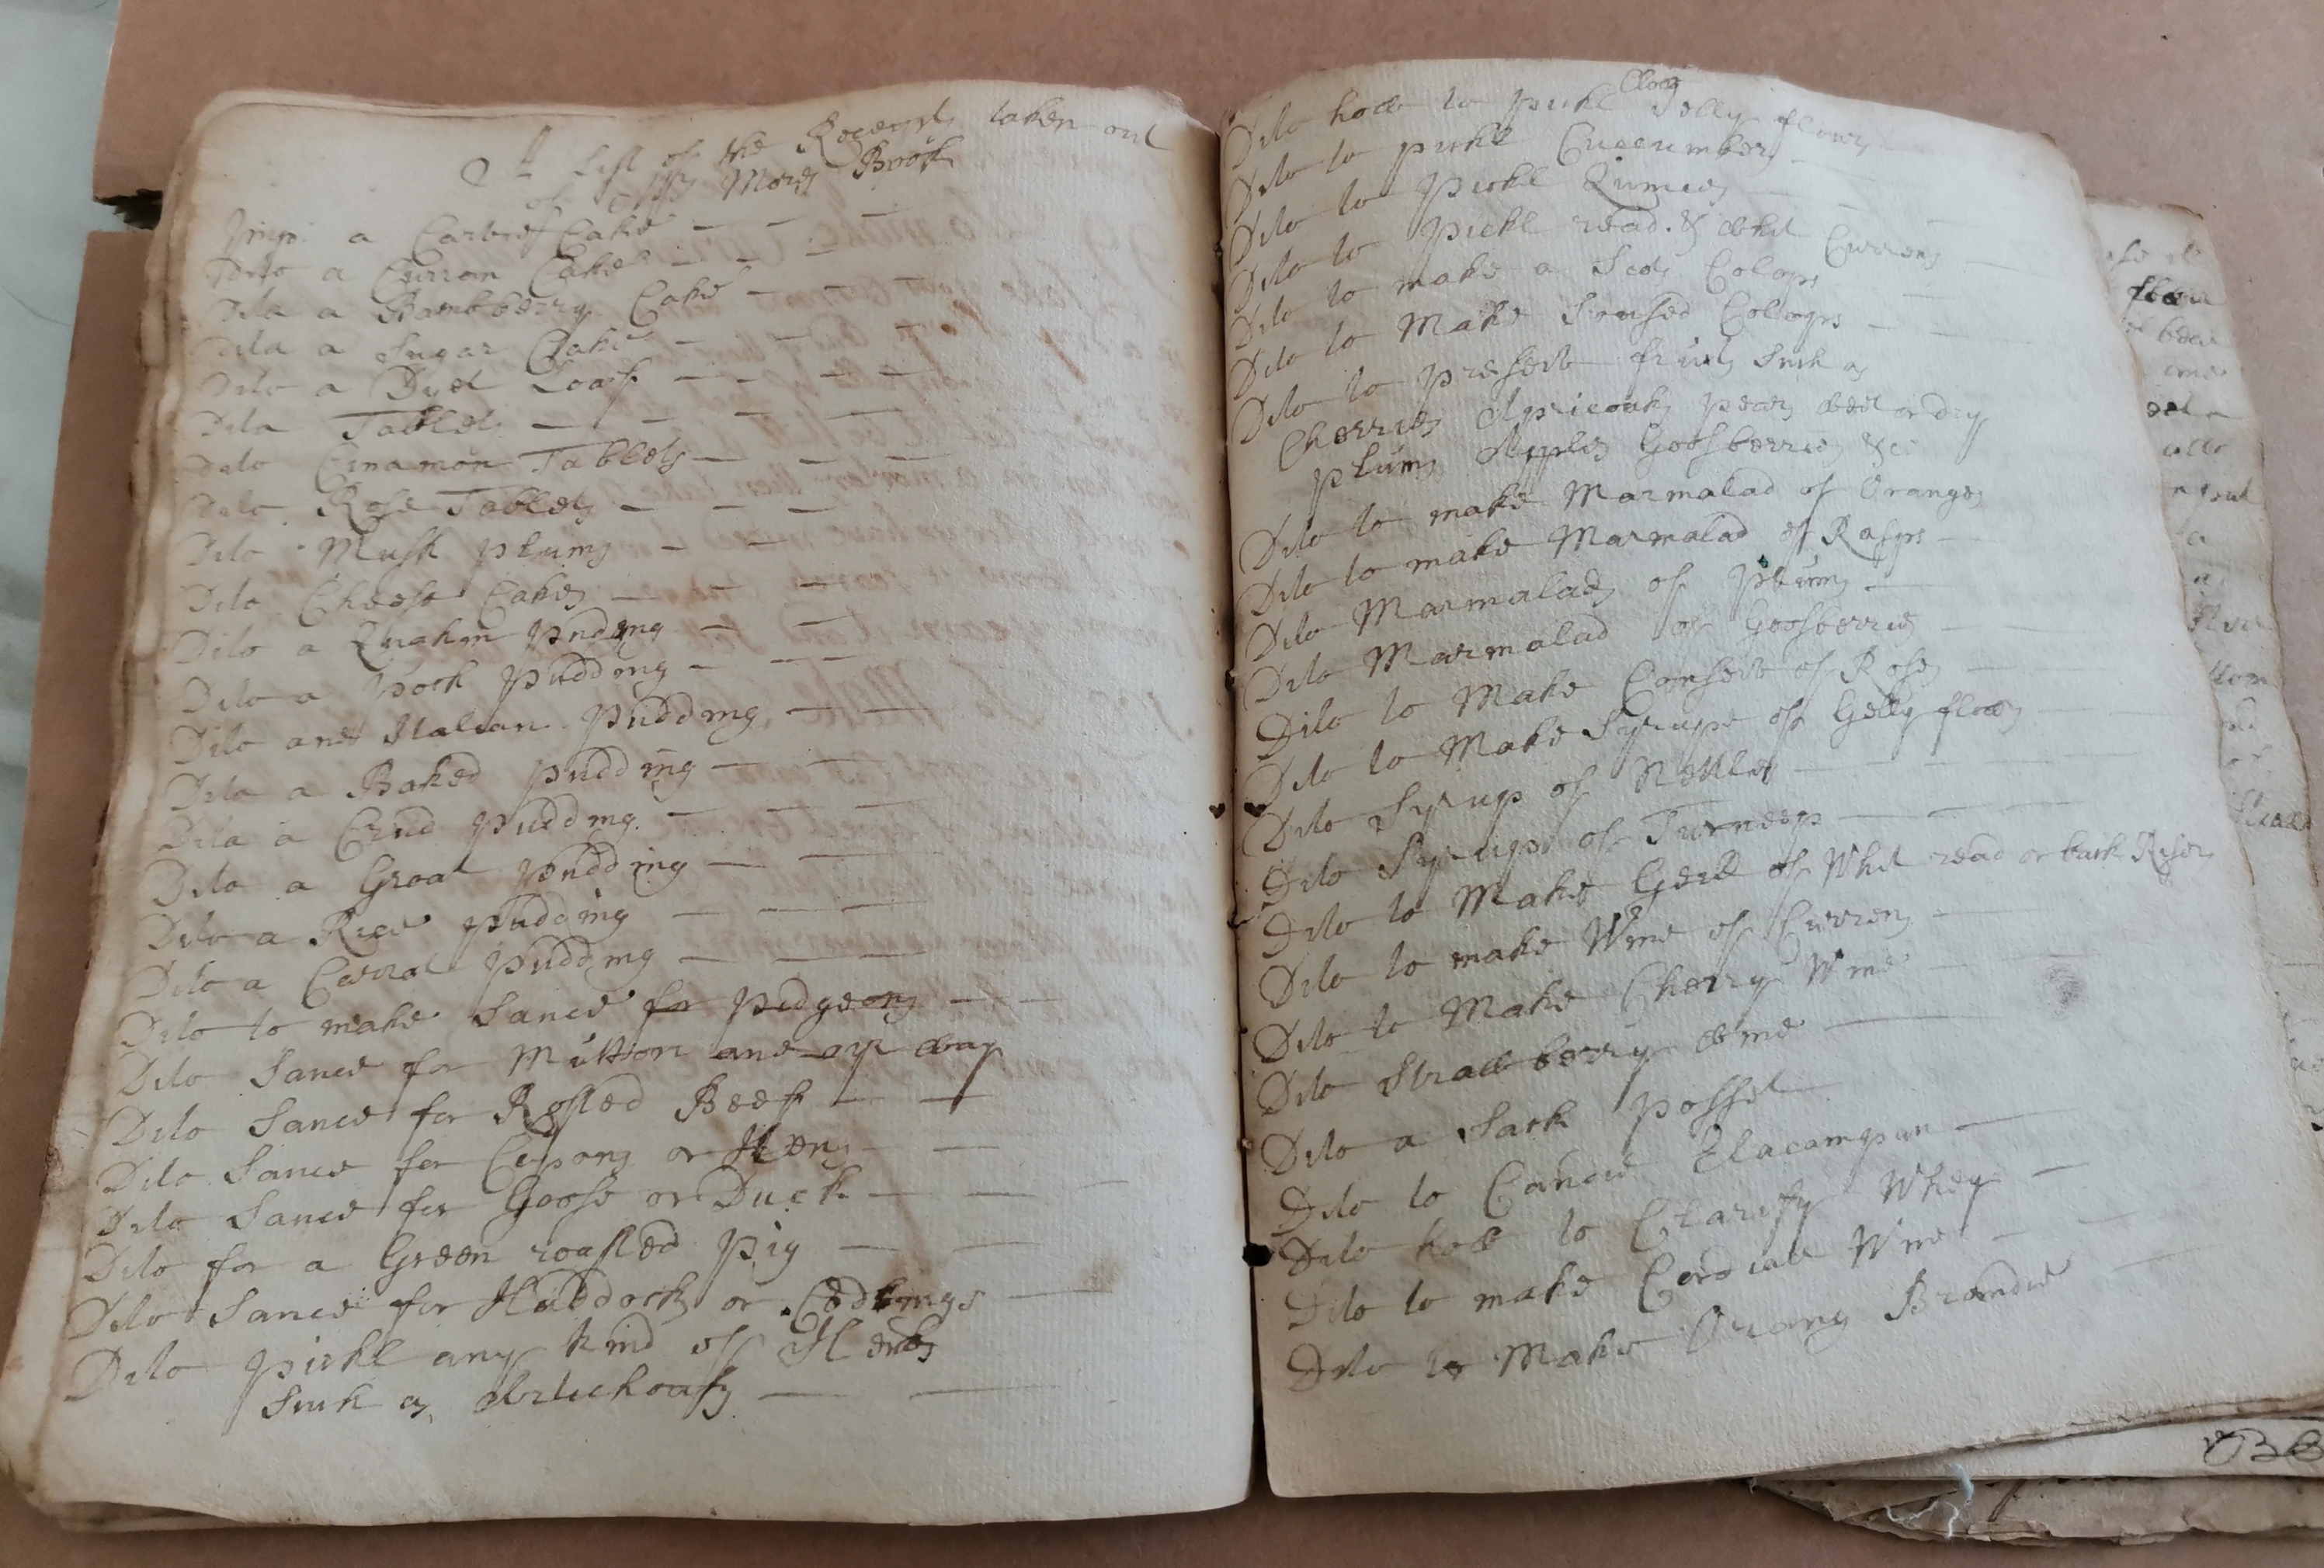 A List of the Receepts taken out
of Mrs Mores Book
Imp: a Cake
Dito a Curran Cake
Dito a Bambberry Cake
Dito a Sugar Cake
Dito a Dyet Loaf
Dito Tablets
Dito Cinamon Tablets
Dito Rose Tablets
Dito Musk plums
Dito Cheese Cakes
Dito a Quaken pudding
Dito a pock pudding
Dito ane Italian pudding
Dito a Baked pudding
Dito a Crud pudding
Dito a Groat pudding
Dito a Rice pudding
Dito a Carrat pudding
Dito to make Sauce for pidgeons
Dito Sauce for Mutton ane oyr way
Dito Sauce for Rosted Beef
Dito Sauce for Capons or Hens
Dito Sauce for Goose or Duck
Dito for a Green roasted pig
Dito Sauce for Haddocks or Codlings
Dito pickl any kind of Herbs
Such as Artichoaks
Dito how to pickl Clow Jelly flowrs
Dito to pickl Cucumbers
Dito to pickl Qunces
Dito to pickl read & whit Currens
Dito to make a Scots Colops
Dito to Make Colops
Dito to preserve fruits Such as
Cherries Apricoaks pears wet or dry
plums Apples Goosberries &c
Dito to make Marmalad of Oranges
Dito to make Marmalad of Rasps
Dito Marmalads of plums
Dito Marmalad of Goosberries
Dito to Make Conserve of Roses
Dito to Make Syrupe of Gelly flows
Dito Syrup of Nettles
Dito Syrups of Turneeps
Dito to Make Geell of Whit read or back Risers
Dito to make Wine of Currens
Dito to Make Cherry Wine
Dito Strawberry wine
Dito a Sack posset
Dito to Candie Elacampan
Dito how to Clarify Whey
Dito to make Cordiall Wine
Dito to Make Orang Brandie